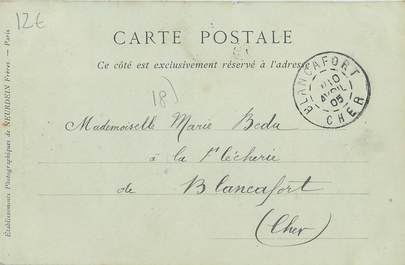 12€
CARTE POSTALE
Ce côté est exclusivement réservé à l'adresse
18)
BLANCAFORT
10
AVRIL
05
CHER
Mademoiselle Marie Bedu
à la Flécherie
de Blancafort
(Cher)
Établissements Photographiques de NEURDEIN Frères. — Paris